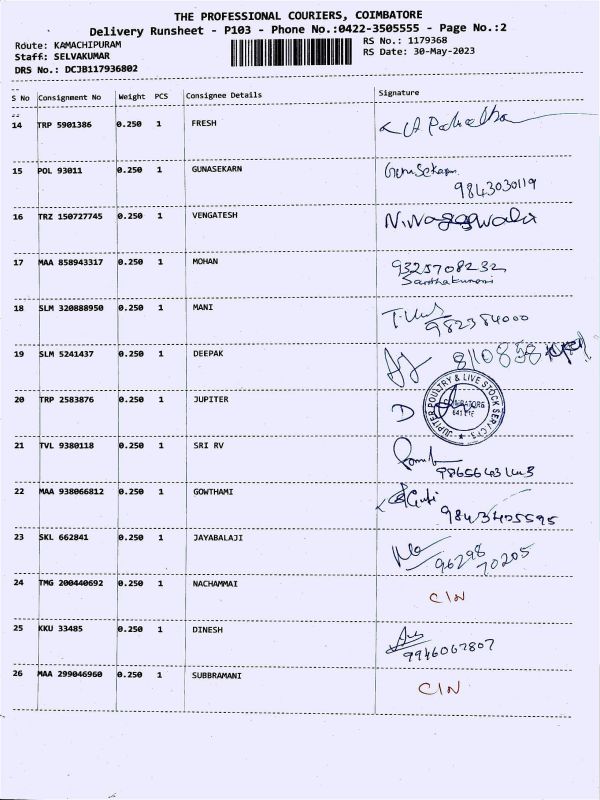 THE PROFESSIONAL COURIERS, COIMBATORE
Delivery Runsheet - P103 - Phone No.:0422-3505555 - Page No.:2
Route: KAMACHIPURAM RS No.: 1179368
Staff: SELVAKUMAR RS Date: 30-May-2023
DRS No.: DCJB117936802
S No Consignment No Weight PCS Consignee Details Signature
14 TRP 5901386 0.250 1 FRESH
15 POL 93011 0.250 1 GUNASEKARN Gunasekarn
9843030119
16 TRZ 150727745 0.250 1 VENGATESH
17 MAA 858943317 0.250 1 MOHAN 9325708232
Santhakumari
18 SLM 320888950 0.250 1 MANI
982384000
19 SLM 5241437 0.250 1 DEEPAK 8110858
20 TRP 2583876 0.250 1 JUPITER D
JUPITER POULTRY & LIVE STOCK
21 TVL 9380118 0.250 1 SRI RV
22 MAA 938066812 0.250 1 GOWTHAMI
9843405595
23 SKL 662841 0.250 1 JAYABALAJI 96298
70205
24 TMG 200440692 0.250 1 NACHAMMAI C/N
25 KKU 33485 0.250 1 DINESH
9946067807
26 MAA 299046960 0.250 1 SUBBRAMANI C/N